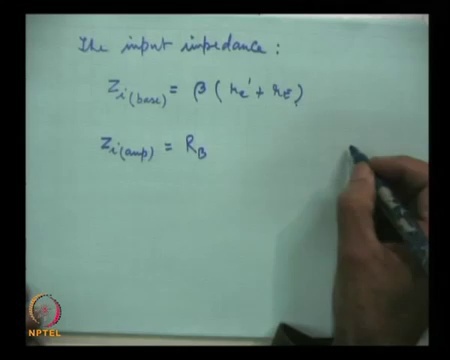 The input impedance :
Zi(base) = β ( re' + rE )
Zi(amp) = RB
NPTEL